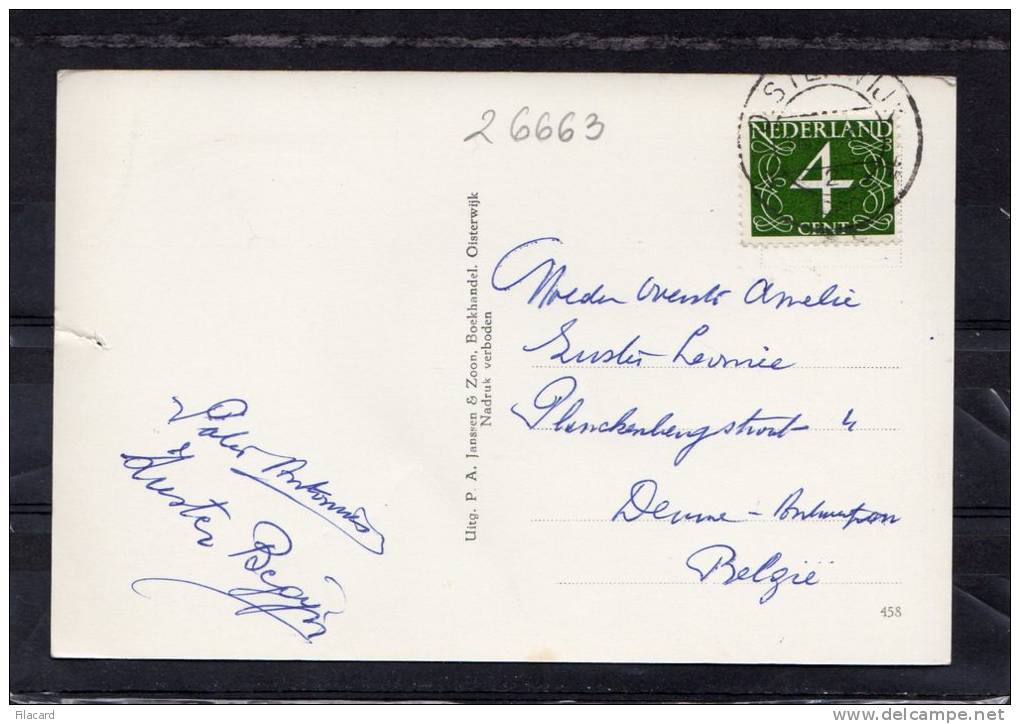 26663
STERWIJ
NEDERLAND
4
CENT
Uitg. P. A. Janssen & Zoon, Boekhandel. Oisterwijk
Nadruk verboden
Moeder Overste Amelie
Zuster Leonie
Planckenbergstraat 4
Deurne - Antwerpen
België
Pater Antonius
&
Zuster Begijn
458
Filacard
www.delcampe.net